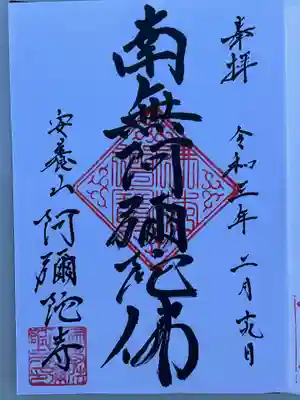 奉拝
令和三年 二月十九日
南無阿彌陀佛
安養山 阿彌陀寺